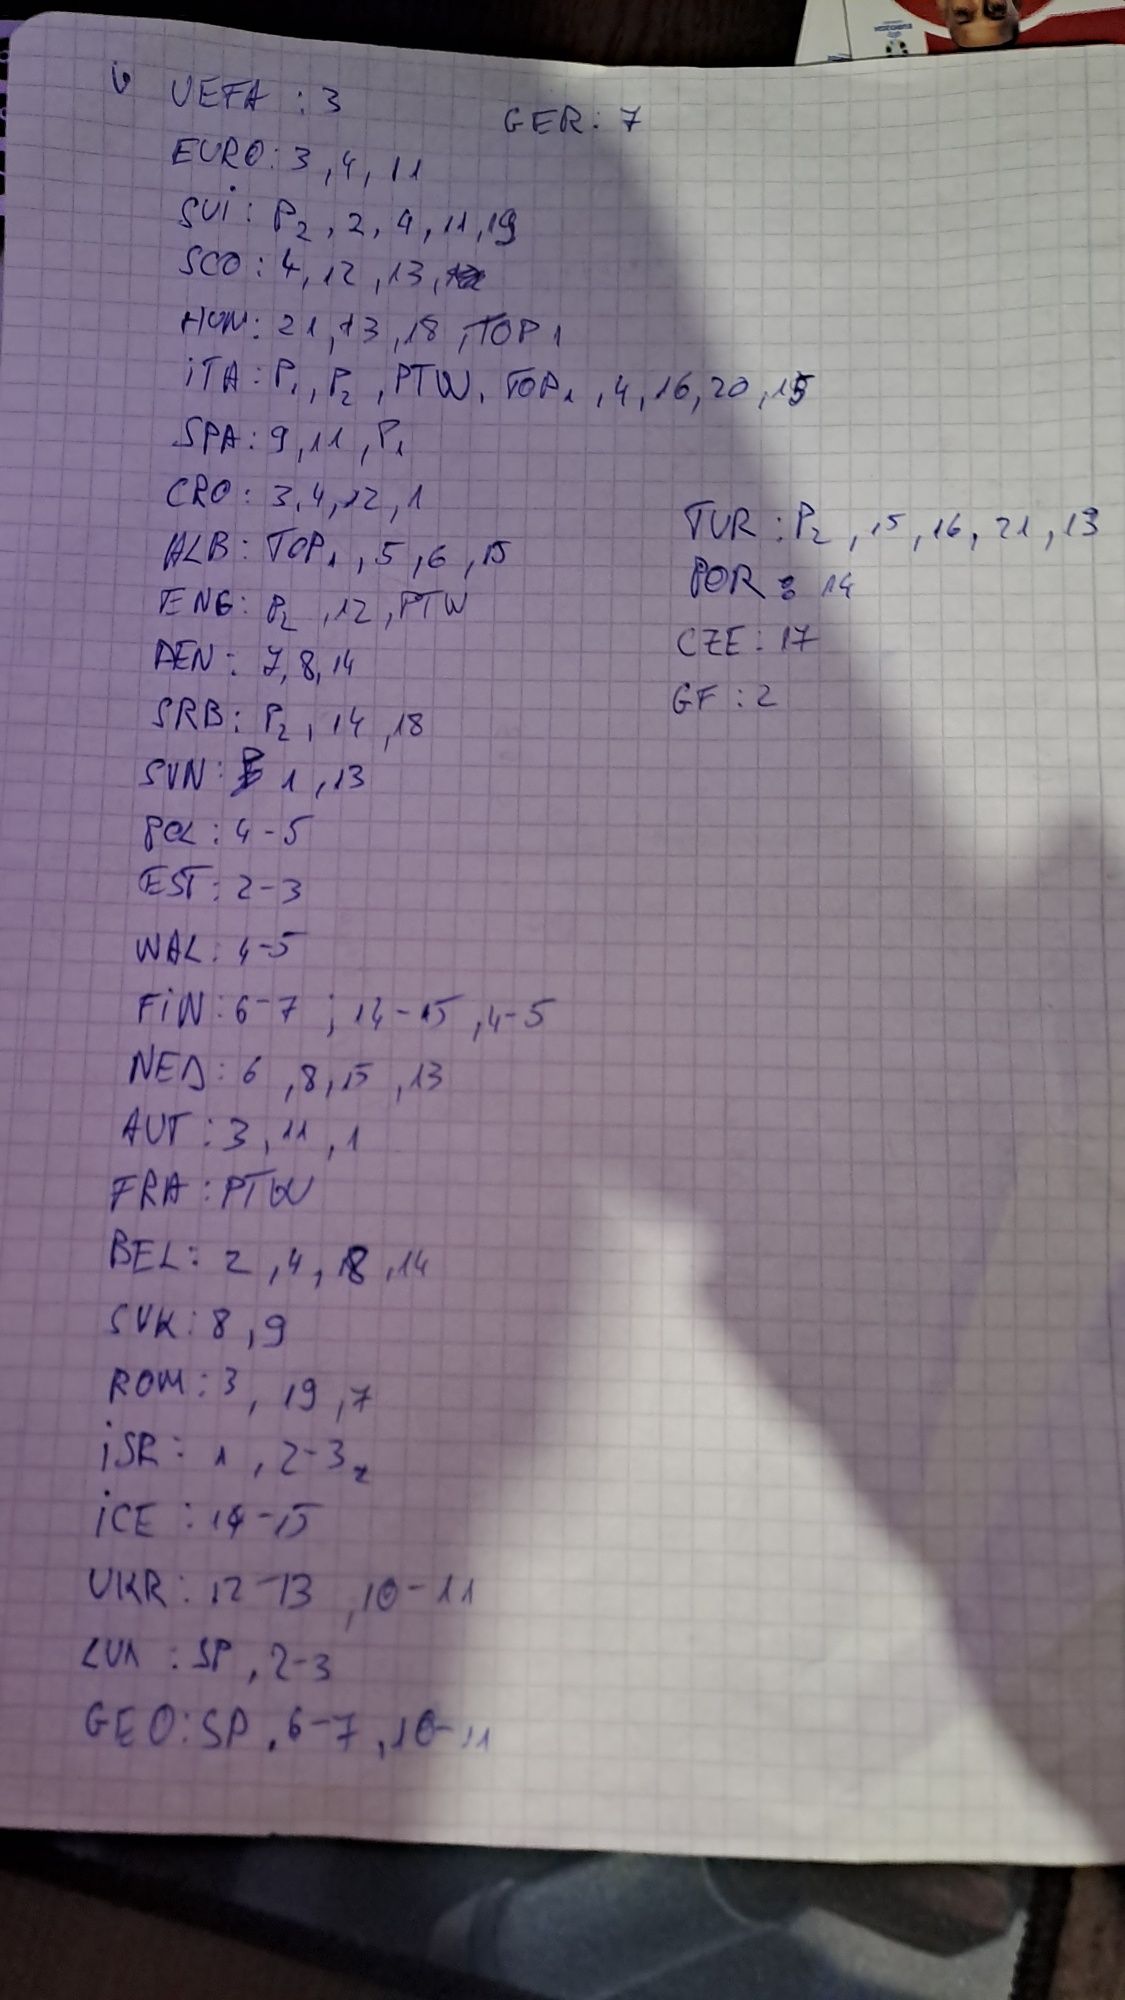 UEFA : 3
GER: 7
EURO: 3, 4, 11
SUI: P2, 2, 4, 11, 19
SCO: 4, 12, 13,
HUN: 21, 13, 18, TOP1
ITA: P1, P2, PTW, TOP1, 4, 16, 20, 15
SPA: 9, 11, P1
CRO: 3, 4, 12, 1
ALB: TOP1, 5, 6, 15
ENG: P2, 12, PTW
DEN: 7, 8, 14
SRB: P2, 14, 18
SVN: 1, 13
POL: 4-5
EST: 2-3
WAL: 4-5
FIN: 6-7; 14-15, 4-5
NED: 6, 8, 15, 13
AUT: 3, 11, 1
FRA: PTW
BEL: 2, 4, 18, 14
SVK: 8, 9
ROM: 3, 19, 7
ISR: 1, 2-3
ICE: 14-15
UKR: 12-13, 10-11
LUX: SP, 2-3
GEO: SP, 6-7, 10-11
TUR: P2, 15, 16, 21, 13
POR: 14
CZE: 17
GF: 2